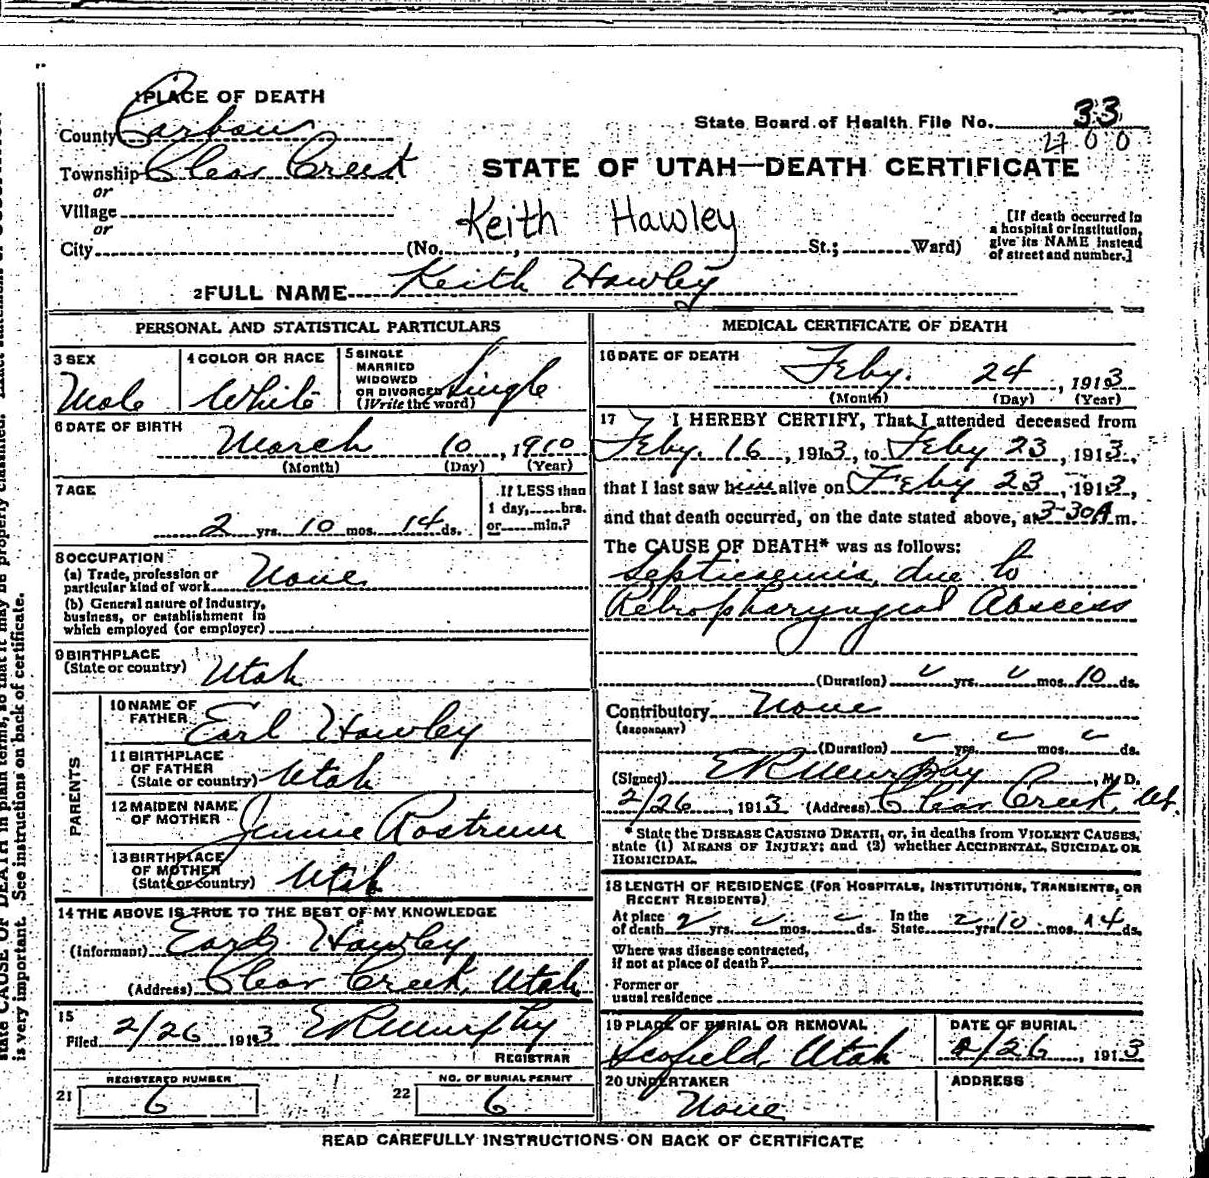 1 PLACE OF DEATH
County Carbon
State Board of Health File No. 33
400
Township Clear Creek
STATE OF UTAH—DEATH CERTIFICATE
or
Village
or
Keith Hawley
City (No. , St.; Ward)
[If death occurred in
a hospital or institution,
give its NAME instead
of street and number.]
2 FULL NAME Keith Hawley
PERSONAL AND STATISTICAL PARTICULARS
3 SEX
Male
4 COLOR OR RACE
White
5 SINGLE
MARRIED
WIDOWED
OR DIVORCED
(Write the word)
Single
6 DATE OF BIRTH
March 10, 1910
(Month) (Day) (Year)
7 AGE
2 yrs. 10 mos. 14 ds.
If LESS than
1 day, hrs.
or min.?
8 OCCUPATION
(a) Trade, profession or
particular kind of work None
(b) General nature of industry,
business, or establishment in
which employed (or employer)
9 BIRTHPLACE
(State or country) Utah
PARENTS
10 NAME OF
FATHER Earl Hawley
11 BIRTHPLACE
OF FATHER
(State or country) Utah
12 MAIDEN NAME
OF MOTHER Jennie Rostrum
13 BIRTHPLACE
OF MOTHER
(State or country) Utah
14 THE ABOVE IS TRUE TO THE BEST OF MY KNOWLEDGE
(Informant) Hawley
(Address) Clear Creek, Utah
15
Filed 2/26 1913 ER Murphy
REGISTRAR
REGISTERED NUMBER
21 6
NO. OF BURIAL PERMIT
22 6
MEDICAL CERTIFICATE OF DEATH
16 DATE OF DEATH
Feby. 24, 1913
(Month) (Day) (Year)
17 I HEREBY CERTIFY, That I attended deceased from
Feby. 16, 1913, to Feby 23, 1913,
that I last saw him alive on Feby 23, 1913,
and that death occurred, on the date stated above, at 3-30 A m.
The CAUSE OF DEATH* was as follows:
Septicaemia, due to
Retropharyngeal Abscess
(Duration) yrs. mos. 10 ds.
Contributory None
(SECONDARY)
(Duration) yrs. mos. ds.
(Signed) ER Murphy, M.D.
2/26, 1913 (Address) Clear Creek, Ut.
* State the DISEASE CAUSING DEATH, or, in deaths from VIOLENT CAUSES,
state (1) MEANS OF INJURY; and (2) whether ACCIDENTAL, SUICIDAL OR
HOMICIDAL.
18 LENGTH OF RESIDENCE (FOR HOSPITALS, INSTITUTIONS, TRANSIENTS, OR
RECENT RESIDENTS)
At place
of death 2 yrs. mos. ds.
In the
State 2 yrs. 10 mos. 14 ds.
Where was disease contracted,
if not at place of death?
Former or
usual residence
19 PLACE OF BURIAL OR REMOVAL
Scofield, Utah
DATE OF BURIAL
2/26, 1913
20 UNDERTAKER
None
ADDRESS
READ CAREFULLY INSTRUCTIONS ON BACK OF CERTIFICATE
state CAUSE OF DEATH in plain terms, so that it may be properly classified. Exact statement of
is very important. See instructions on back of certificate.